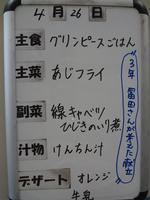 4月26日
主食 グリンピースごはん
主菜 あじフライ
副菜 線キャベツ
ひじきのいり煮
汁物 けんちん汁
デザート オレンジ
牛乳
3年 冨田さんが考えた献立